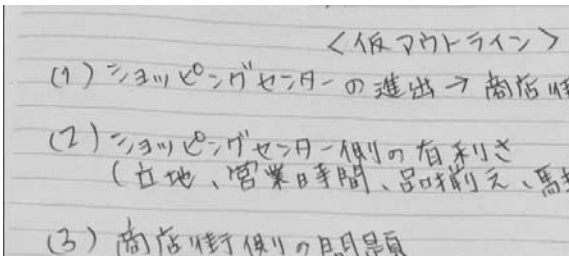 ＜仮アウトライン＞
(1) ショッピングセンターの進出→商店街
(2) ショッピングセンター側の有利さ
(立地、営業時間、品揃え、
(3) 商店街側の問題